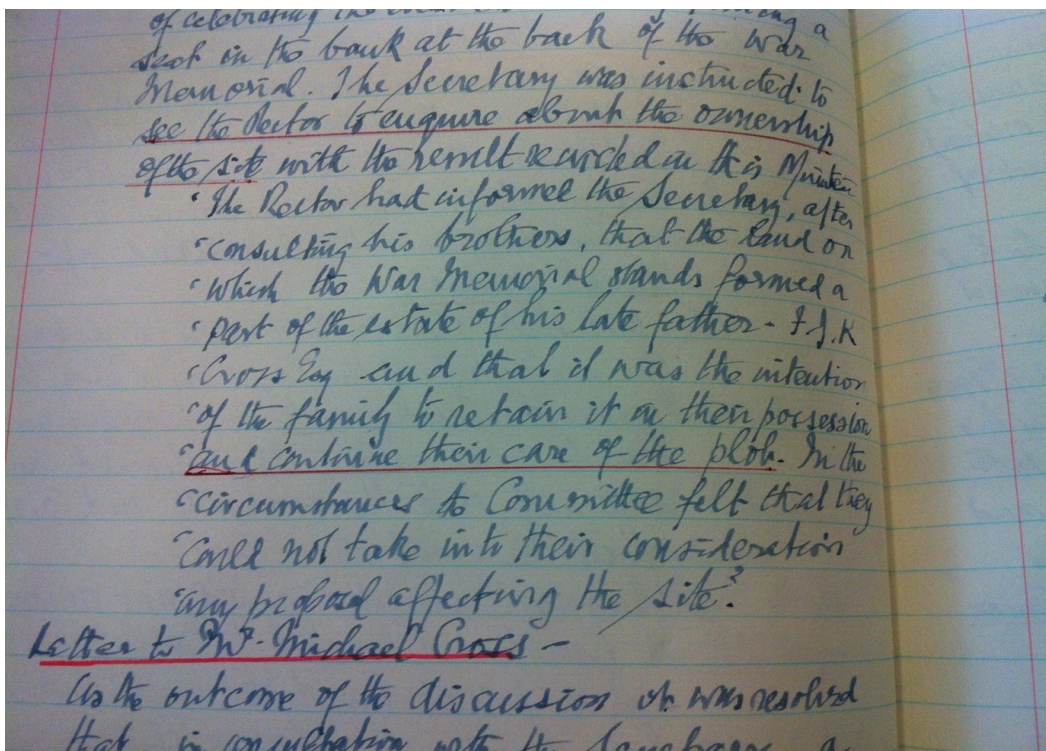 of celebrating the a
seat in the bank at the back of the War
Memorial. The Secretary was instructed to
see the Rector to enquire about the ownership
of the site with the result recorded in this Minute:
"The Rector had informed the Secretary, after
"consulting his brothers, that the land on
"which the War Memorial stands formed a
"part of the estate of his late father - F.J.K
"Cross Esq and that it was the intention
"of the family to retain it in their possession
"and continue their care of the plot. In the
"circumstances the Committee felt that they
"could not take into their consideration
"any proposal affecting the site."
Letter to Mr. Michael Cross -
As the outcome of the discussion it was resolved
that in consultation with the a